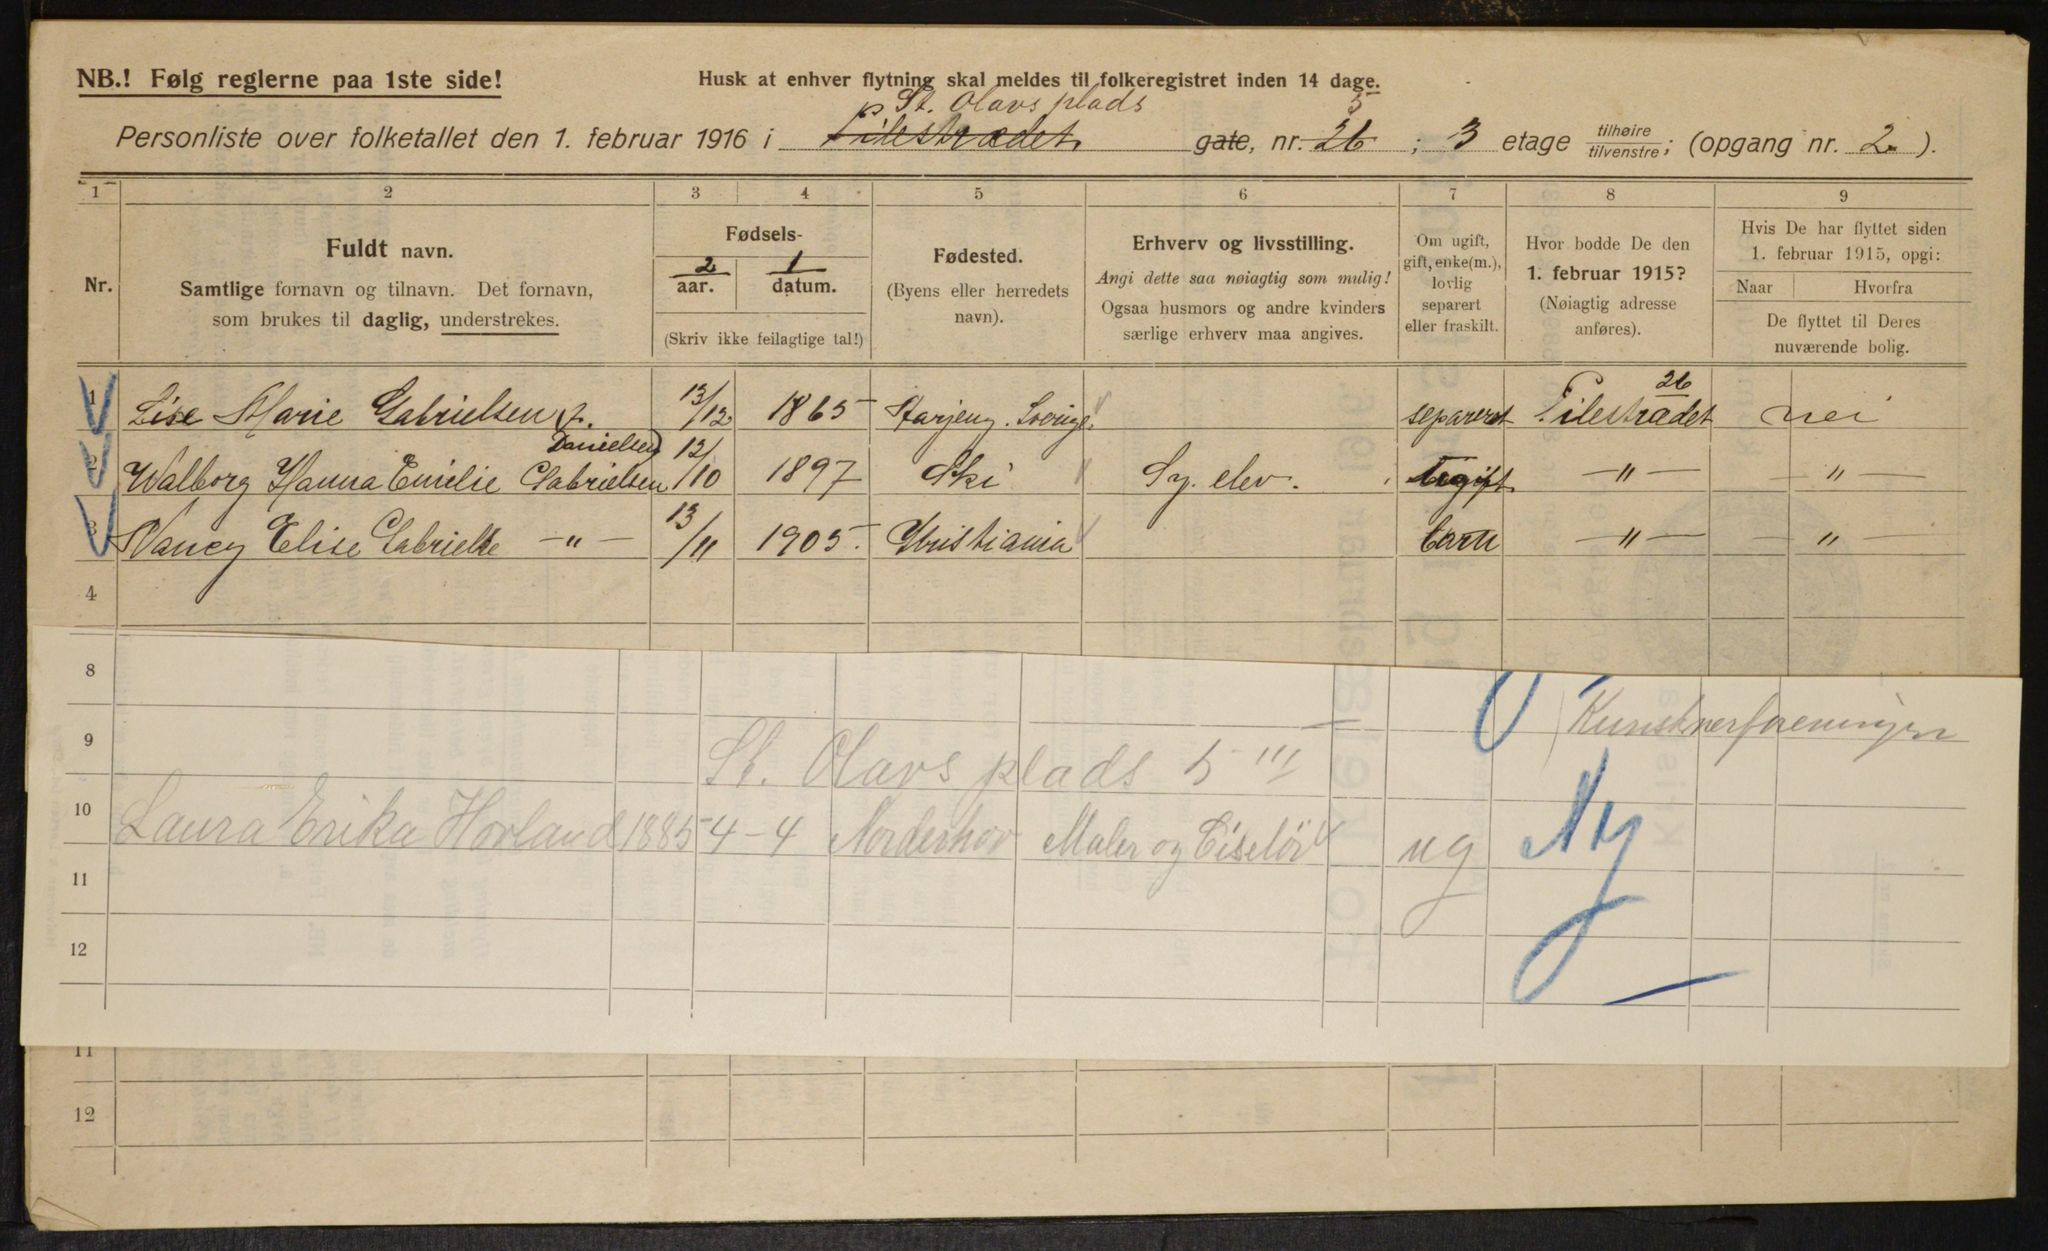 NB.! Følg reglerne paa 1ste side!
Husk at enhver flytning skal meldes til folkeregistret inden 14 dage.
St. Olavs plads 5
Personliste over folketallet den 1. februar 1916 i Pilestrædet gate, nr. 26 ; 3 etage tilhøire/tilvenstre; (opgang nr. 2. ).
1 2 3 4 5 6 7 8 9
Nr.
Fuldt navn.
Samtlige fornavn og tilnavn. Det fornavn,
som brukes til daglig, understrekes.
Fødsels-
2 1
aar. datum.
(Skriv ikke feilagtige tal!)
Fødested.
(Byens eller herredets
navn).
Erhverv og livsstilling.
Angi dette saa nøiagtig som mulig!
Ogsaa husmors og andre kvinders
særlige erhverv maa angives.
Om ugift,
gift, enke(m.),
lovlig
separert
eller fraskilt.
Hvor bodde De den
1. februar 1915?
(Nøiagtig adresse
anføres).
Hvis De har flyttet siden
1. februar 1915, opgi:
Naar Hvorfra
De flyttet til Deres
nuværende bolig.
1 Lise Marie Gabrielsen 13/12 1865 Sverige. separeret Pilestrædet 26 nei
Danielsen
2 Walborg Hanna Emilie Gabrielsen 12/10 1897 Ski Sy. elev. Ugift — " — — " —
3 Nancy Elise Gabrielle — " — 13/11 1905. Kristiania barn — " — — " —
4
8
Kunstnerforeningen
9 St. Olavs plads 5 III
10 Laura Erika Hovland 1885 4-4 Norderhov Maler og Ciselør ug Ny
11
12
11
12